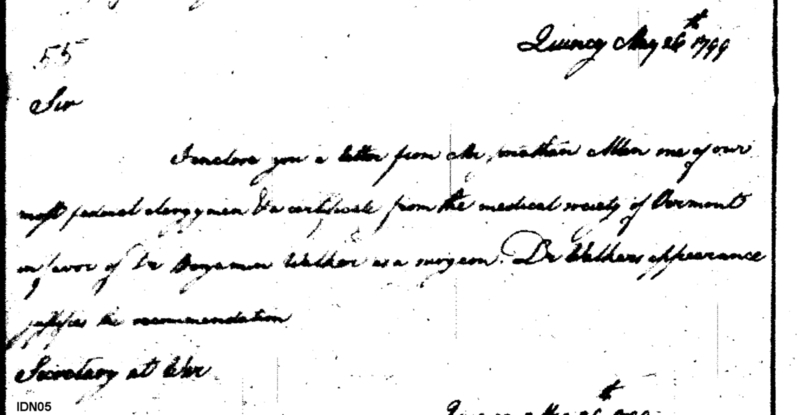 55
Quincy May 26th 1799
Sir
I inclose you a letter from Mr Jonathan Allen one of our
most federal clergymen & a certificate from the medical society of Vermont
in favor of Dr Benjamin Walker as a surgeon. Dr Walkers appearance
justifies the recommendation
Secretary at War
IDN05